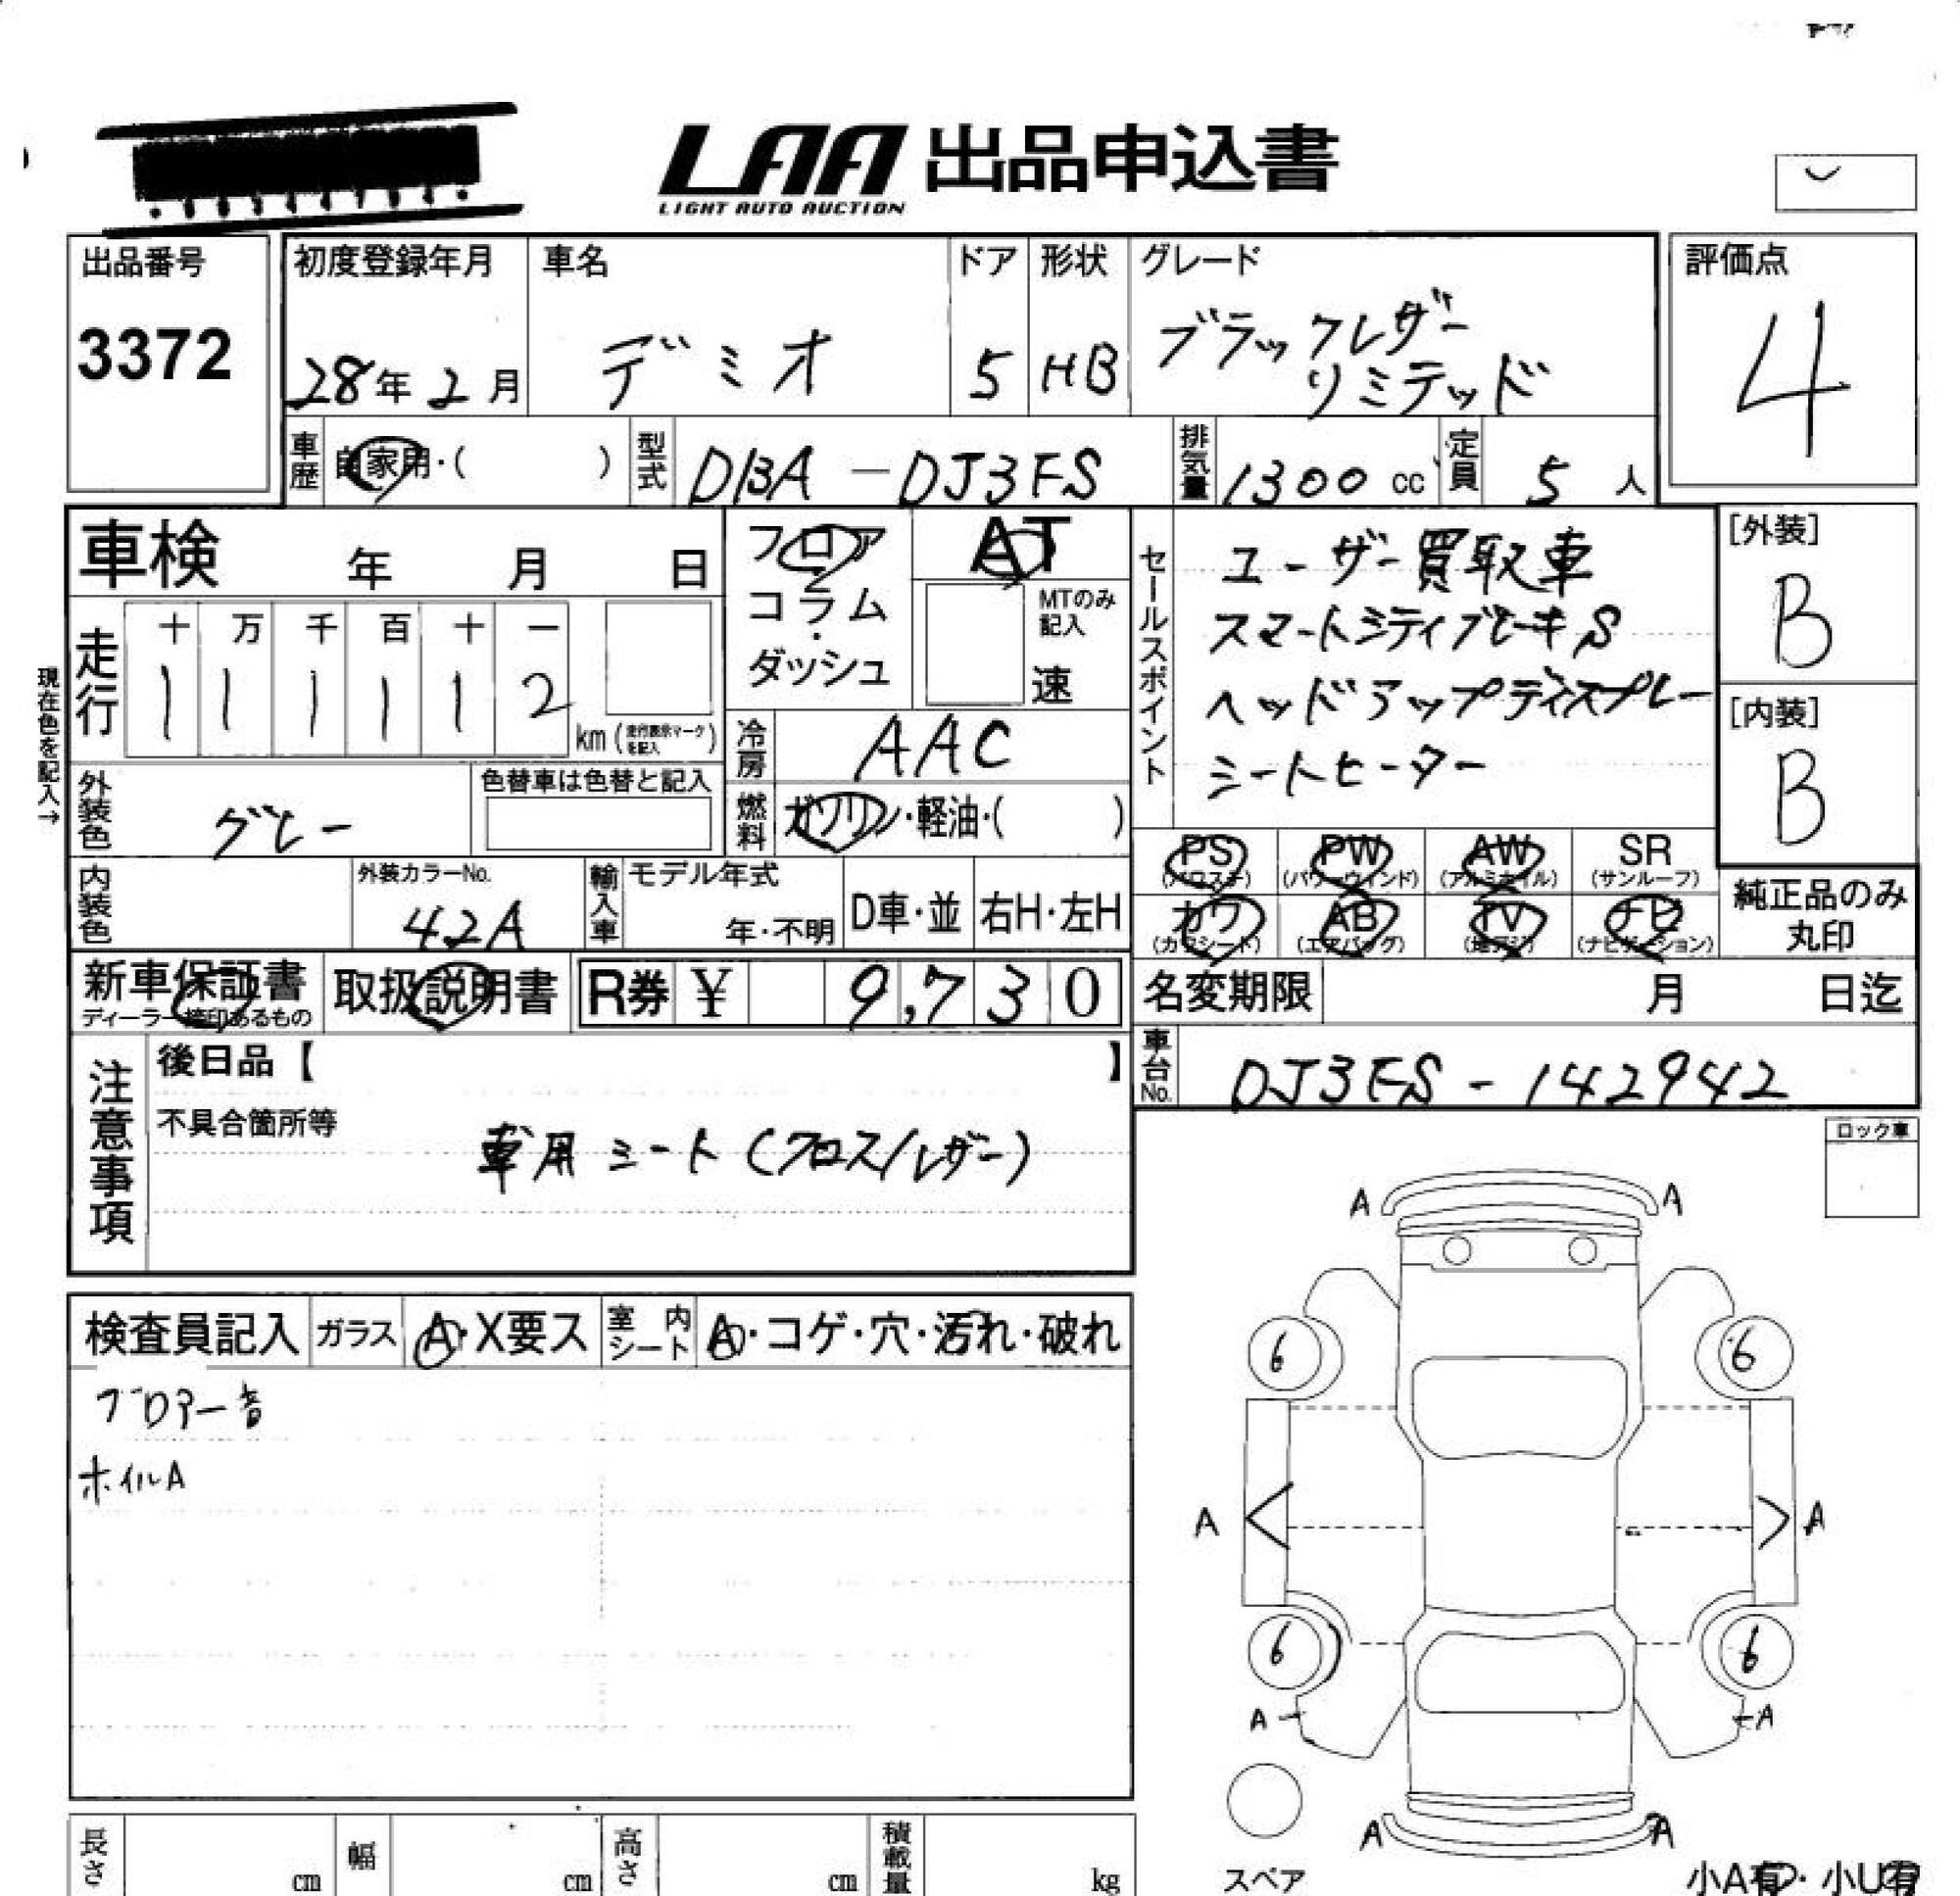 LAA 出品申込書
LIGHT AUTO AUCTION
出品番号
3372
初度登録年月
28年2月
車名
デミオ
ドア
5
形状
HB
グレード
ブラックレザー
リミテッド
評価点
4
車歴
自家用・( )
型式
DBA-DJ3FS
排気量
1300 cc
定員
5 人
車検 年 月 日
フロア
・
コラム
・
ダッシュ
AT
MTのみ
記入
速
セールスポイント
ユーザー買取車
スマートシティブレーキS
ヘッドアップディスプレー
シートヒーター
[外装]
B
[内装]
B
現在色を記入→
走行
十 万 千 百 十 一
1 1 1 1 1 2
km (走行表示マークを記入)
冷房
AAC
外装色
グレー
色替車は色替と記入
燃料
ガソリン・軽油・( )
PS
(パワステ)
PW
(パワーウィンド)
AW
(アルミホイル)
SR
(サンルーフ)
カワ
(カワシート)
AB
(エアバッグ)
TV
(地デジ)
ナビ
(ナビゲーション)
純正品のみ
丸印
内装色
外装カラーNo.
42A
輸入車
モデル年式
年・不明
D車・並
右H・左H
新車保証書
ディーラー捺印あるもの
取扱説明書
R券 ¥ 9,730
名変期限 月 日迄
車台No.
DJ3FS-142942
注意事項
後日品【 】
不具合箇所等
専用シート(クロス/レザー)
ロック車
検査員記入
ガラス
A・X要ス
室内シート
A・コゲ・穴・汚れ・破れ
ブロアー音
ホイルA
A A
6 6
A A
6 6
A A
A A
スペア
小A有・小U有
長さ cm
幅 cm
高さ cm
積載量 kg